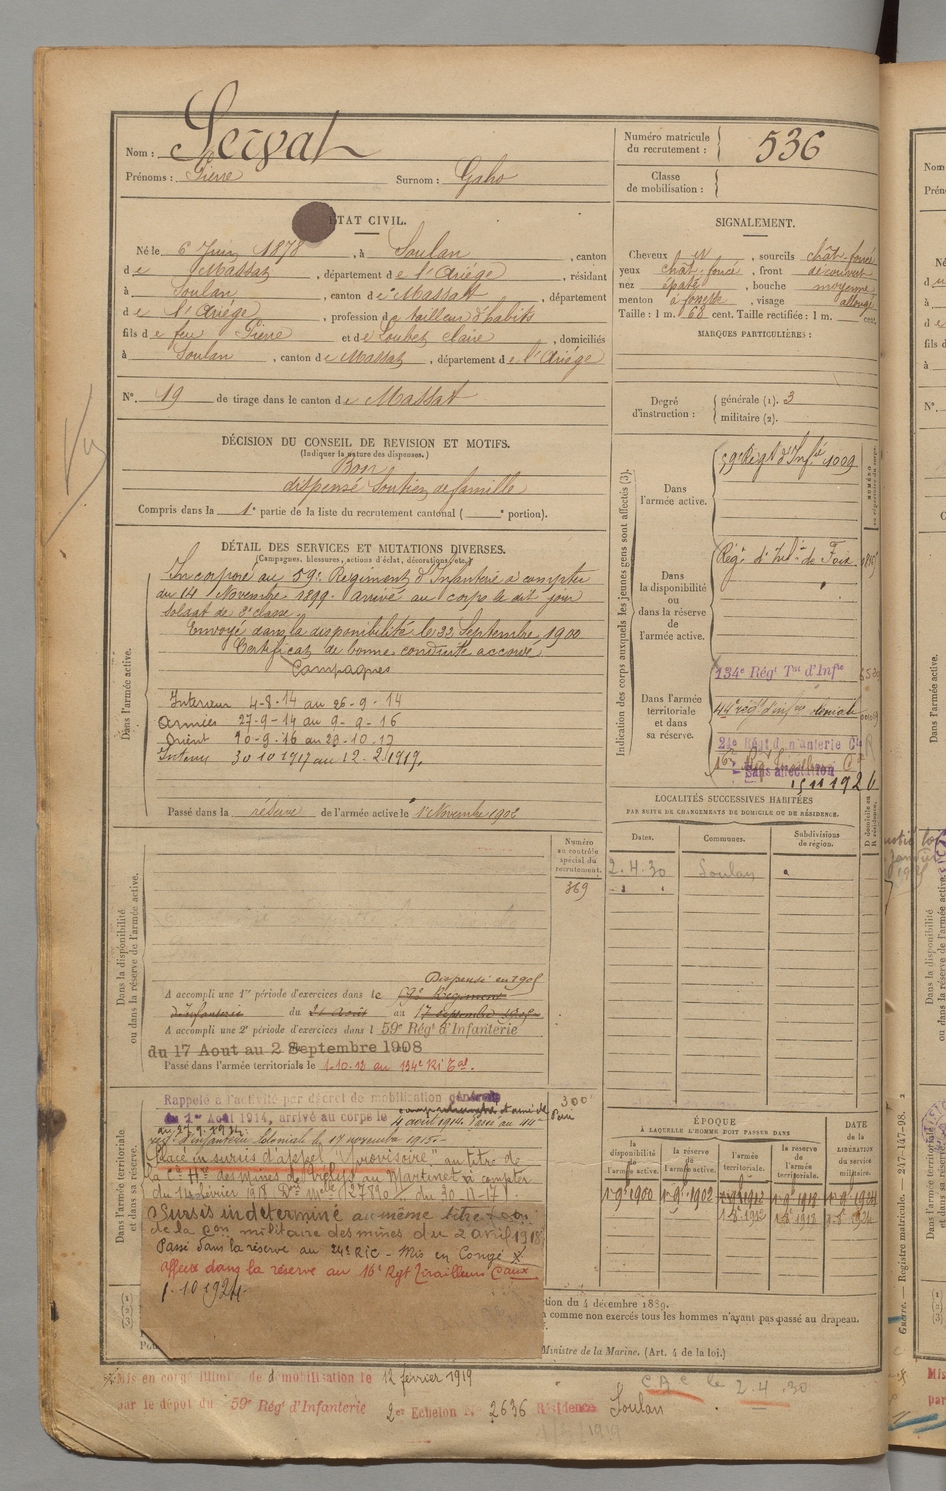 Nom : Servat
Prénoms : Pierre Surnom : Gaho
Numéro matricule du recrutement : 536
Classe de mobilisation :
ÉTAT CIVIL.
Né le 6 Juin 1878, à Soulan, canton
de Massat, département de l'Ariége, résidant
à Soulan, canton de Massat, département
de l'Ariége, profession de tailleur d'habits
fils de feu Pierre et de Loubet Claire, domiciliés
à Soulan, canton de Massat, département de l'Ariége
N° 19 de tirage dans le canton de Massat
SIGNALEMENT.
Cheveux , sourcils chât foncé
yeux chât. foncé, front découvert
nez épaté, bouche moyenne
menton à fossette, visage allongé
Taille : 1 m. 60 cent. Taille rectifiée : 1 m. cent.
MARQUES PARTICULIÈRES :
Degré d'instruction : générale (1). 3
militaire (2).
DÉCISION DU CONSEIL DE REVISION ET MOTIFS.
(Indiquer la nature des dispenses.)
Bon
dispensé Soutien de famille
Compris dans la 1e partie de la liste du recrutement cantonal ( e portion).
DÉTAIL DES SERVICES ET MUTATIONS DIVERSES.
(Campagnes, blessures, actions d'éclat, décorations, etc.)
Dans l'armée active.
Incorporé au 59e Régiment d'Infanterie à compter
du 14 Novembre 1899. Arrivé au corps le dit jour
soldat de 2e classe.
Envoyé dans la disponibilité le 22 Septembre 1900
Certificat de bonne conduite accordé
Campagnes
Interieur 4-8-14 au 26-9-14
Armées 27-9-14 au 9-9-16
Orient 10-9-16 au 29-10-17
Interieur 30 10 1917 au 12-2-1919.
Passé dans la réserve de l'armée active le 1er Novembre 1902
Indication des corps auxquels les jeunes gens sont affectés (3).
Dans l'armée active.
59e Régt d'Infie 1009
Dans la disponibilité ou dans la réserve de l'armée active.
Régt d'Infie de Foix
Dans l'armée territoriale et dans sa réserve.
134e Régt Tal d'Infie
44e régt d'infie coloniale
24e Régt d'Infanterie Cle
16e Régt Tirailleurs
Sans affectation
15 11 1926
LOCALITÉS SUCCESSIVES HABITÉES
PAR SUITE DE CHANGEMENTS DE DOMICILE OU DE RÉSIDENCE.
Dates. Communes. Subdivisions de région.
2.4.30 Soulan
Dans la disponibilité ou dans la réserve de l'armée active.
Numéro au contrôle spécial du recrutement.
369
Dispensé en 1905
A accompli une 1re période d'exercices dans le 59e Régiment
d'Infanterie du 21 Août au 17 Septembre 1905
A accompli une 2e période d'exercices dans l 59e Régt d'Infanterie
du 17 Aout au 2 Septembre 1908
Passé dans l'armée territoriale le 1.10.12 au 134e Ri Tal.
Dans l'armée territoriale et dans sa réserve.
Rappelé à l'activité par décret de mobilisation générale
du 1er Août 1914, arrivé au corps le
4 août 1914. Passé au 44e
régt d'infanterie Coloniale le 17 novembre 1915.
300
Placé en sursis d'appel "Provisoire" au titre de
la Cie
du 14 février 1918
Sursis indéterminé au même titre
de la Con militaire des mines du 2 avril 1918
Passé dans la réserve au 24e RIC - Mis en Congé X
affecté dans la réserve au 16e Rgt Tirailleurs Caux
1-10-1924.
ÉPOQUE
À LAQUELLE L'HOMME DOIT PASSER DANS
la disponibilité de l'armée active.
la réserve de l'armée active.
l'armée territoriale.
la réserve de l'armée territoriale.
DATE de la LIBÉRATION du service militaire.
1er 9bre 1900 1er 9bre 1902 1er 9bre 1912 1er 9bre 1918 1er 9bre 1924
1er 8bre 1912 1er 8bre 1918 1er 8bre 1924
ction du 4 décembre 1889.
n comme non exercés tous les hommes n'ayant pas passé au drapeau.
Ministre de la Marine. (Art. 4 de la loi.)
Guerre. — Registre matricule. — 247-147-98.
Mis en congé illimité de démobilisation le 12 février 1919
par le dépôt du 59e Régt d'Infanterie 2e Echelon N° 2636 Résidence Soulan
C A C le 2.4.30